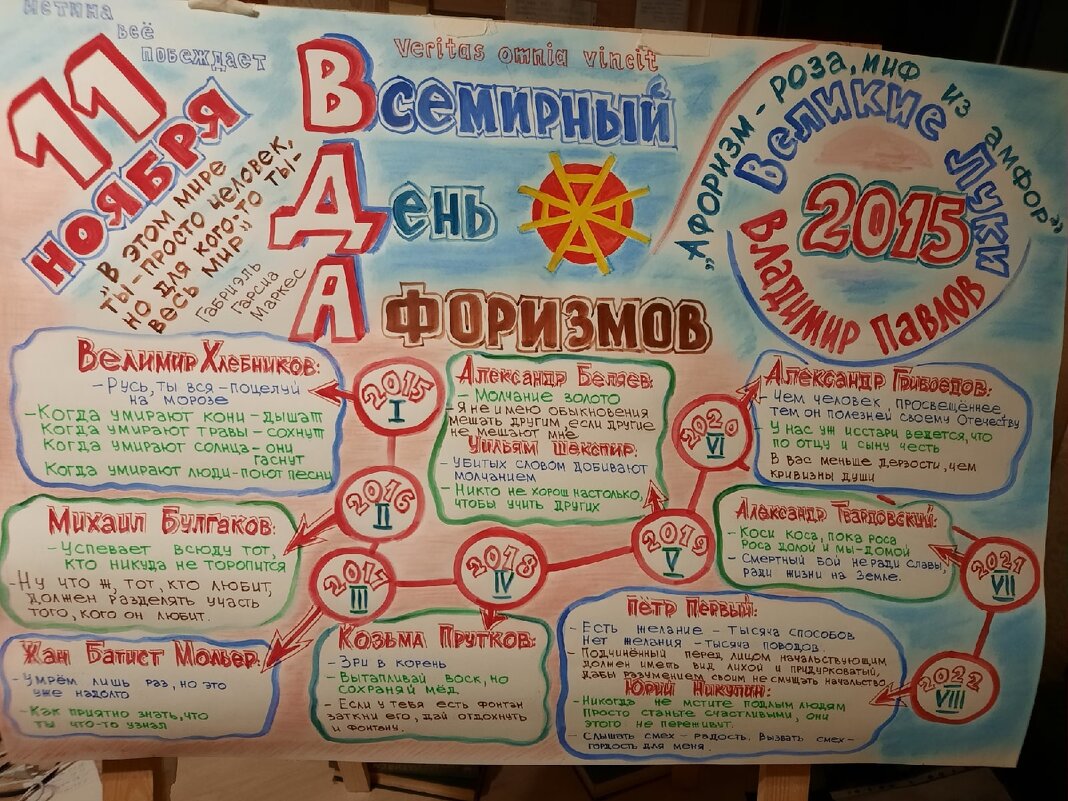 истина
всё
побеждает
11
НОЯБРЯ
"В ЭТОМ МИРЕ
ТЫ-ПРОСТО ЧЕЛОВЕК,
НО ДЛЯ КОГО-ТО ТЫ-
ВЕСЬ МИР"
ГАБРИЭЛЬ
ГАРСИА
МАРКЕС
Veritas omnia vincit
ВСЕМИРНЫЙ
ДЕНЬ
АФОРИЗМОВ
„АФОРИЗМ-РОЗА, МИФ ИЗ АМФОР"
ВЕЛИКИЕ ЛУКИ
2015
ВЛАДИМИР ПАВЛОВ
ВЕЛИМИР ХЛЕБНИКОВ:
-РУСЬ, ТЫ ВСЯ-ПОЦЕЛУЙ
НА МОРОЗЕ
-КОГДА УМИРАЮТ КОНИ-ДЫШАТ
КОГДА УМИРАЮТ ТРАВЫ-СОХНУТ
КОГДА УМИРАЮТ СОЛНЦА-ОНИ
ГАСНУТ
КОГДА УМИРАЮТ ЛЮДИ-ПОЮТ ПЕСНИ
2015
I
МИХАИЛ БУЛГАКОВ:
-УСПЕВАЕТ ВСЮДУ ТОТ,
КТО НИКУДА НЕ ТОРОПИТСЯ
-НУ ЧТО Ж, ТОТ, КТО ЛЮБИТ,
ДОЛЖЕН РАЗДЕЛЯТЬ УЧАСТЬ
ТОГО, КОГО ОН ЛЮБИТ.
2016
II
ЖАН БАТИСТ МОЛЬЕР:
-УМРЁМ ЛИШЬ РАЗ, НО ЭТО
УЖЕ НАДОЛГО
-КАК ПРИЯТНО ЗНАТЬ, ЧТО
ТЫ ЧТО-ТО УЗНАЛ
2017
III
КОЗЬМА ПРУТКОВ:
-ЗРИ В КОРЕНЬ
-ВЫТАПЛИВАЙ ВОСК, НО
СОХРАНЯЙ МЁД.
-ЕСЛИ У ТЕБЯ ЕСТЬ ФОНТАН
ЗАТКНИ ЕГО, ДАЙ ОТДОХНУТЬ
И ФОНТАНУ.
2018
IV
АЛЕКСАНДР БЕЛЯЕВ:
-МОЛЧАНИЕ ЗОЛОТО
-Я НЕ ИМЕЮ ОБЫКНОВЕНИЯ
МЕШАТЬ ДРУГИМ, ЕСЛИ ДРУГИЕ
НЕ МЕШАЮТ МНЕ
УИЛЬЯМ ШЕКСПИР:
-УБИТЫХ СЛОВОМ ДОБИВАЮТ
МОЛЧАНИЕМ
-НИКТО НЕ ХОРОШ НАСТОЛЬКО,
ЧТОБЫ УЧИТЬ ДРУГИХ
2019
V
АЛЕКСАНДР ГРИБОЕДОВ:
-ЧЕМ ЧЕЛОВЕК ПРОСВЕЩЁННЕЕ,
ТЕМ ОН ПОЛЕЗНЕЙ СВОЕМУ ОТЕЧЕСТВУ
-У НАС УЖ ИССТАРИ ВЕДЕТСЯ, ЧТО
ПО ОТЦУ И СЫНУ ЧЕСТЬ
В ВАС МЕНЬШЕ ДЕРЗОСТИ, ЧЕМ
КРИВИЗНЫ ДУШИ
2020
VI
АЛЕКСАНДР ТВАРДОВСКИЙ:
-КОСИ КОСА, ПОКА РОСА
РОСА ДОЛОЙ И МЫ-ДОМОЙ
-СМЕРТНЫЙ БОЙ НЕ РАДИ СЛАВЫ,
РАДИ ЖИЗНИ НА ЗЕМЛЕ.
2021
VII
ПЁТР ПЕРВЫЙ:
-ЕСТЬ ЖЕЛАНИЕ-ТЫСЯЧА СПОСОБОВ
НЕТ ЖЕЛАНИЯ-ТЫСЯЧА ПОВОДОВ.
-ПОДЧИНЁННЫЙ ПЕРЕД ЛИЦОМ НАЧАЛЬСТВУЮЩИМ
ДОЛЖЕН ИМЕТЬ ВИД ЛИХОЙ И ПРИДУРКОВАТЫЙ,
ДАБЫ РАЗУМЕНИЕМ СВОИМ НЕ СМУЩАТЬ НАЧАЛЬСТВО
ЮРИЙ НИКУЛИН:
-НИКОГДА НЕ МСТИТЕ ПОДЛЫМ ЛЮДЯМ
ПРОСТО СТАНЬТЕ СЧАСТЛИВЫМИ, ОНИ
ЭТОГО НЕ ПЕРЕЖИВУТ.
-СЛЫШАТЬ СМЕХ-РАДОСТЬ, ВЫЗВАТЬ СМЕХ-
ГОРДОСТЬ ДЛЯ МЕНЯ.
2022
VIII